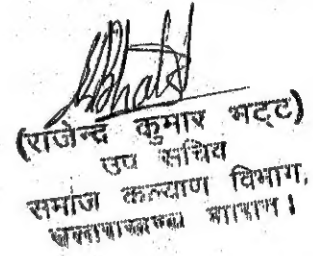 (राजेन्द्र कुमार भट्ट)
उप सचिव
समाज कल्याण विभाग,
शासन।